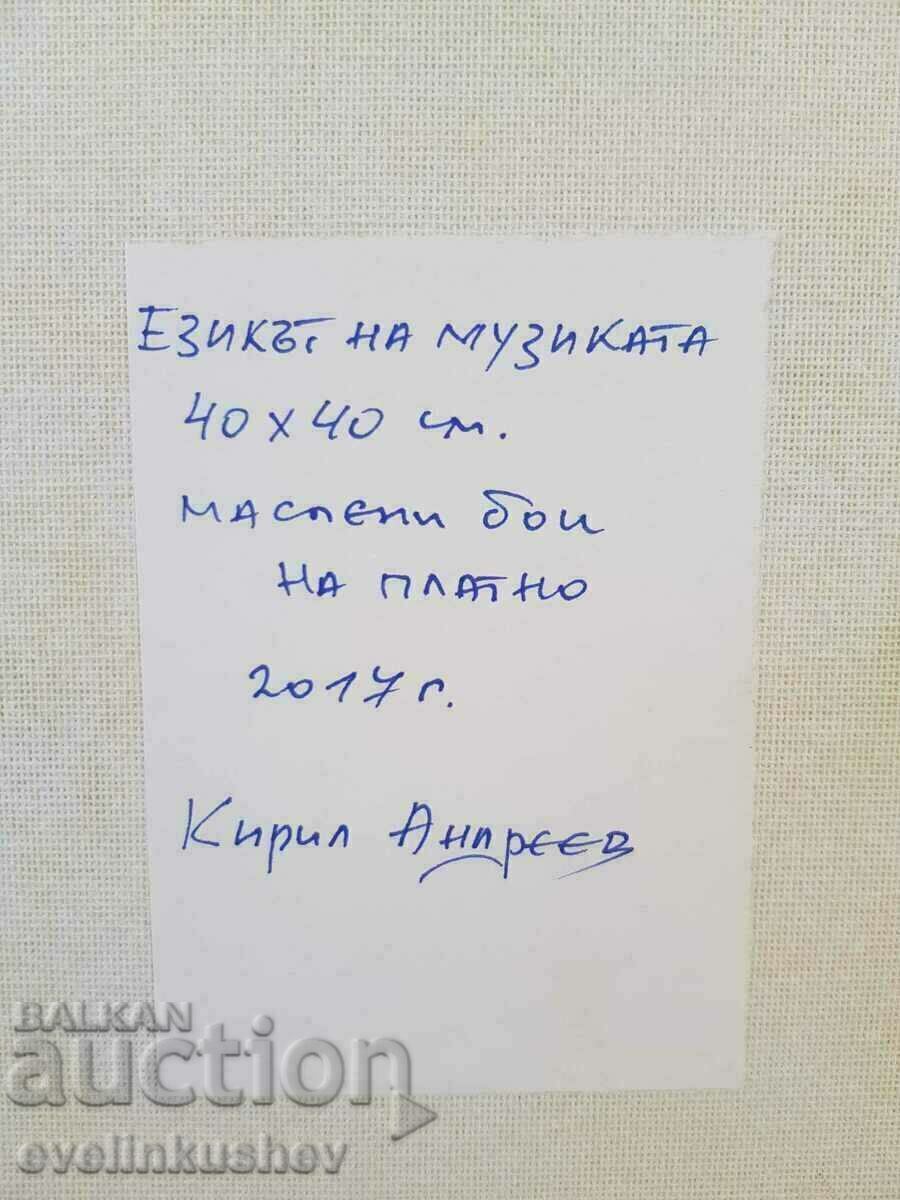 Езикът на музиката
40 х 40 см.
маслени бои
на платно
2017 г.
Кирил Андреев
BALKAN
auction
evelinkushev